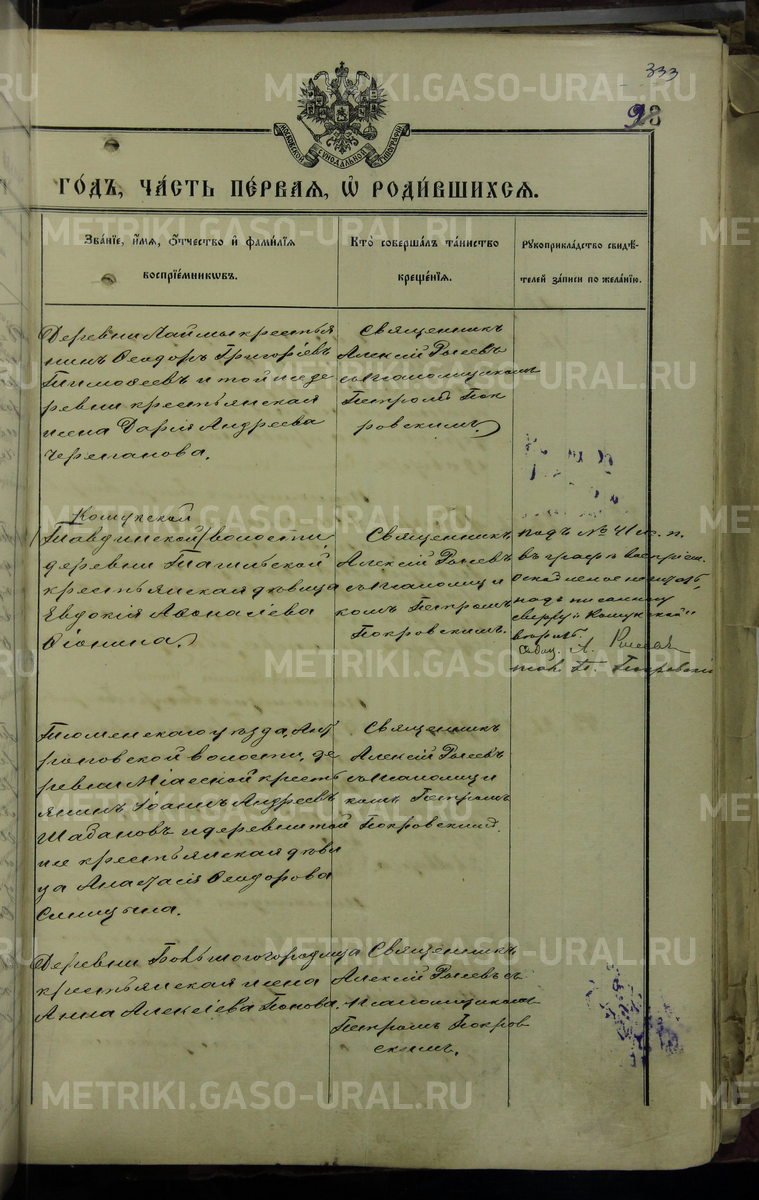 333
98
МОСКОВСКОЙ СѴНОДАЛЬНОЙ ТИПОГРАФІИ
ГО́ДЪ, ЧА́СТЬ ПЕ́РВАЯ, Ѡ҆ РОДИ́ВШИХСЯ.
Зва́нїе, и҆́мя, ѻ҆́тчество и҆ фами́лїя
воспрїе́мникѡвъ.
Кто̀ соверша́лъ та́инство
креще́нїя.
Рꙋкоприкла́дство свидѣ́-
телей за́писи по жела́нїю.
Деревни Лаймы крестья
нинъ Ѳеодоръ Григоріевъ
Тимоѳеевъ и той же де
ревни крестьянская
жена Дарія Андреева
Черепанова.
Священникъ
Алексій Рычевъ
съ псаломщикомъ
Петромъ Пок
ровскимъ.
Кошукской
(Тавдинской) волости,
деревни Тагильской
крестьянская дѣвица
Евдокія Аѳонасіева
Ѳіонина.
Священникъ
Алексій Рычевъ
съ псаломщи
комъ Петромъ
Покровскимъ.
подъ № 41 м. п.
въ графѣ воспріем.
надписанному
сверху: "Кошукской"
вѣрить.
Свящ. А. Рычевъ
псал. П. Покровскій
Тюменскаго уѣзда, Ан
роповской волости, де
ревни Міасской кресть
янинъ Іоаннъ Андреевъ
Шабановъ и деревни той
же крестьянская дѣви
ца Анастасія Ѳеодорова
Синицына.
Священникъ
Алексій Рычевъ
съ псаломщи
комъ Петромъ
Покровскимъ.
Деревни Большогородища
крестьянская жена
Анна Алексіева Попова.
Священникъ
Алексій Рычевъ съ
псаломщикомъ
Петромъ Покров
скимъ.
METRIKI.GASO-URAL.RU